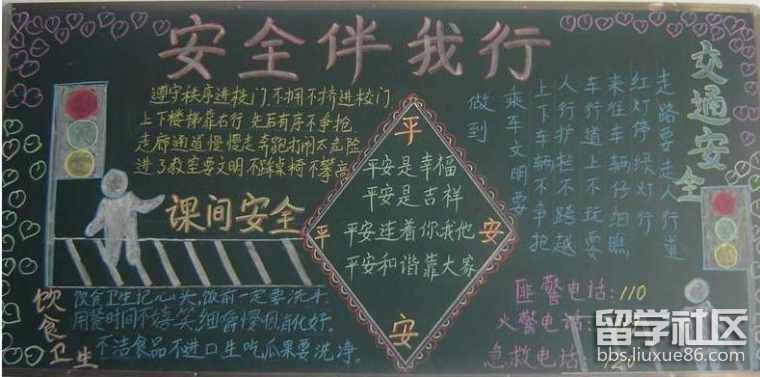 安全伴我行
遵守秩序进校门 不拥不挤进校门
上下楼梯靠右行 先后有序不争抢
走廊通道慢慢走 奔跑打闹太危险
进了教室要文明 不踩桌椅不攀高
课间安全
平
平 安
安
平安是幸福
平安是吉祥
平安连着你我他
平安和谐靠大家
交通安全
走路要走人行道
红灯停绿灯行
来往车辆仔细瞧
车行道上不玩耍
人行护栏不跨越
上下车辆不争抢
乘车文明要
做到
饮食卫生
饮食卫生记心头,饭前一定要洗手
用餐时间不嬉笑,细嚼慢
不洁食品不进口 生吃瓜果要洗净.
匪警电话:110
火警电话:
急救电话:120
留学社区
bbs.liuxue86.com